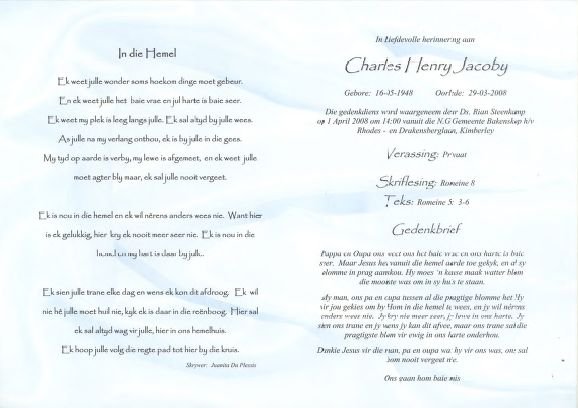 In die Hemel
Ek weet julle wonder soms hoekom dinge moet gebeur.
En ek weet julle het baie vrae en jul harte is baie seer.
Ek weet my plek is leeg langs julle. Ek sal altyd by julle wees.
As julle na my verlang onthou, ek is by julle in die gees.
My tyd op aarde is verby, my lewe is afgemeet, en ek weet julle
moet agter bly maar, ek sal julle nooit vergeet.
Ek is nou in die hemel en ek wil nêrens anders wees nie. Want hier
is ek gelukkig, hier kry ek nooit meer seer nie. Ek is nou in die
hemel en my hart is daar by jull..
Ek sien julle trane elke dag en wens ek kon dit afdroog. Ek wil
nie hê julle moet huil nie, kyk ek is daar in die reënboog. Hier sal
ek sal altyd wag vir julle, hier in ons hemelhuis.
Ek hoop julle volg die regte pad tot hier by die kruis.
Skrywer: Juanita Du Plessis
In Liefdevolle herinnering aan
Charles Henry Jacoby
Gebore: 16-05-1948 Oorlede: 29-03-2008
Die gedenkdiens word waargeneem deur Ds. Rian Steenkamp
op 1 April 2008 om 14:00 vanuit die N.G Gemeente Bakenskop h/v
Rhodes - en Drakensberglaan, Kimberley
Verassing: Privaat
Skriflesing: Romeine 8
Teks: Romeine 5: 3-6
Gedenkbrief
Pappa en Oupa ons weet ons het baie vrae en ons harte is baie
seer. Maar Jesus het vanuit die hemel aarde toe gekyk, en al sy
blomme in prag aanskou. Hy moes 'n kasse maak watter blom
die mooiste was om in sy huis te staan.
My man, ons pa en oupa tussen al die pragtige blomme het Hy
vir jou gekies om by Hom in die hemel te wees, en jy wil nêrens
anders wees nie. Jy kry nie meer seer, jy lewe in ons harte. Jy
sien ons trane en jy wens jy kan dit afvee, maar ons trane sal die
pragtigste blom vir ewig in ons harte onderhou.
Dankie Jesus vir die man, pa en oupa wat hy vir ons was, ons sal
hom nooit vergeet nie.
Ons gaan hom baie mis